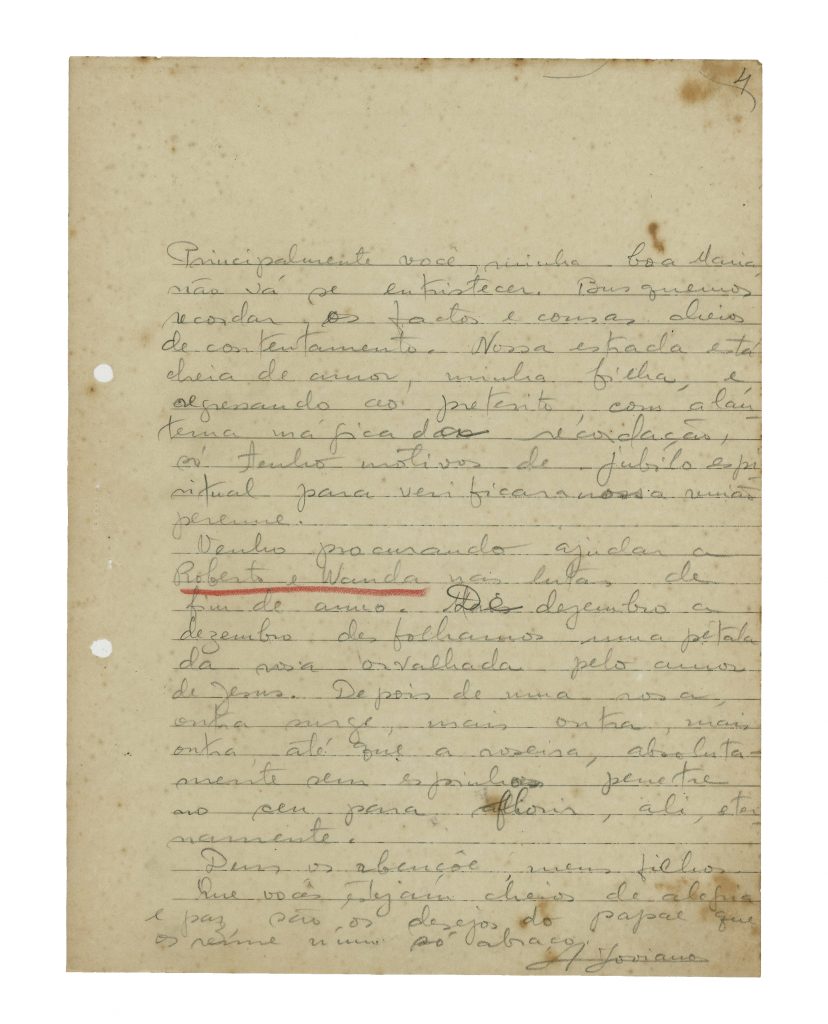 4
Principalmente você, minha boa Maria,
não vá se entristecer. Busquemos
recordar os factos e cousas cheios
de contentamento. Nossa estrada está
cheia de amor, minha filha, e
regressando ao preterito, com a lan-
terna mágica da recordação,
só tenho motivos de jubilo espi-
ritual para verificar a nossa união
perenne.
Venho procurando ajudar a
Roberto e Wanda nas lutas de
fim de anno. De dezembro a
dezembro desfolhamos uma pétala
da rosa orvalhada pelo amor
de Jesus. Depois de uma rosa,
outra surge, mais outra, mais
outra, até que a roseira, absoluta-
mente sem espinhos penetre
no ceu para florir, ali, eter-
namente.
Deus os abençôe, meus filhos.
Que vocês estejam cheios de alegria
e paz são os desejos do papae que
os reúne num só abraço.
A Joviano